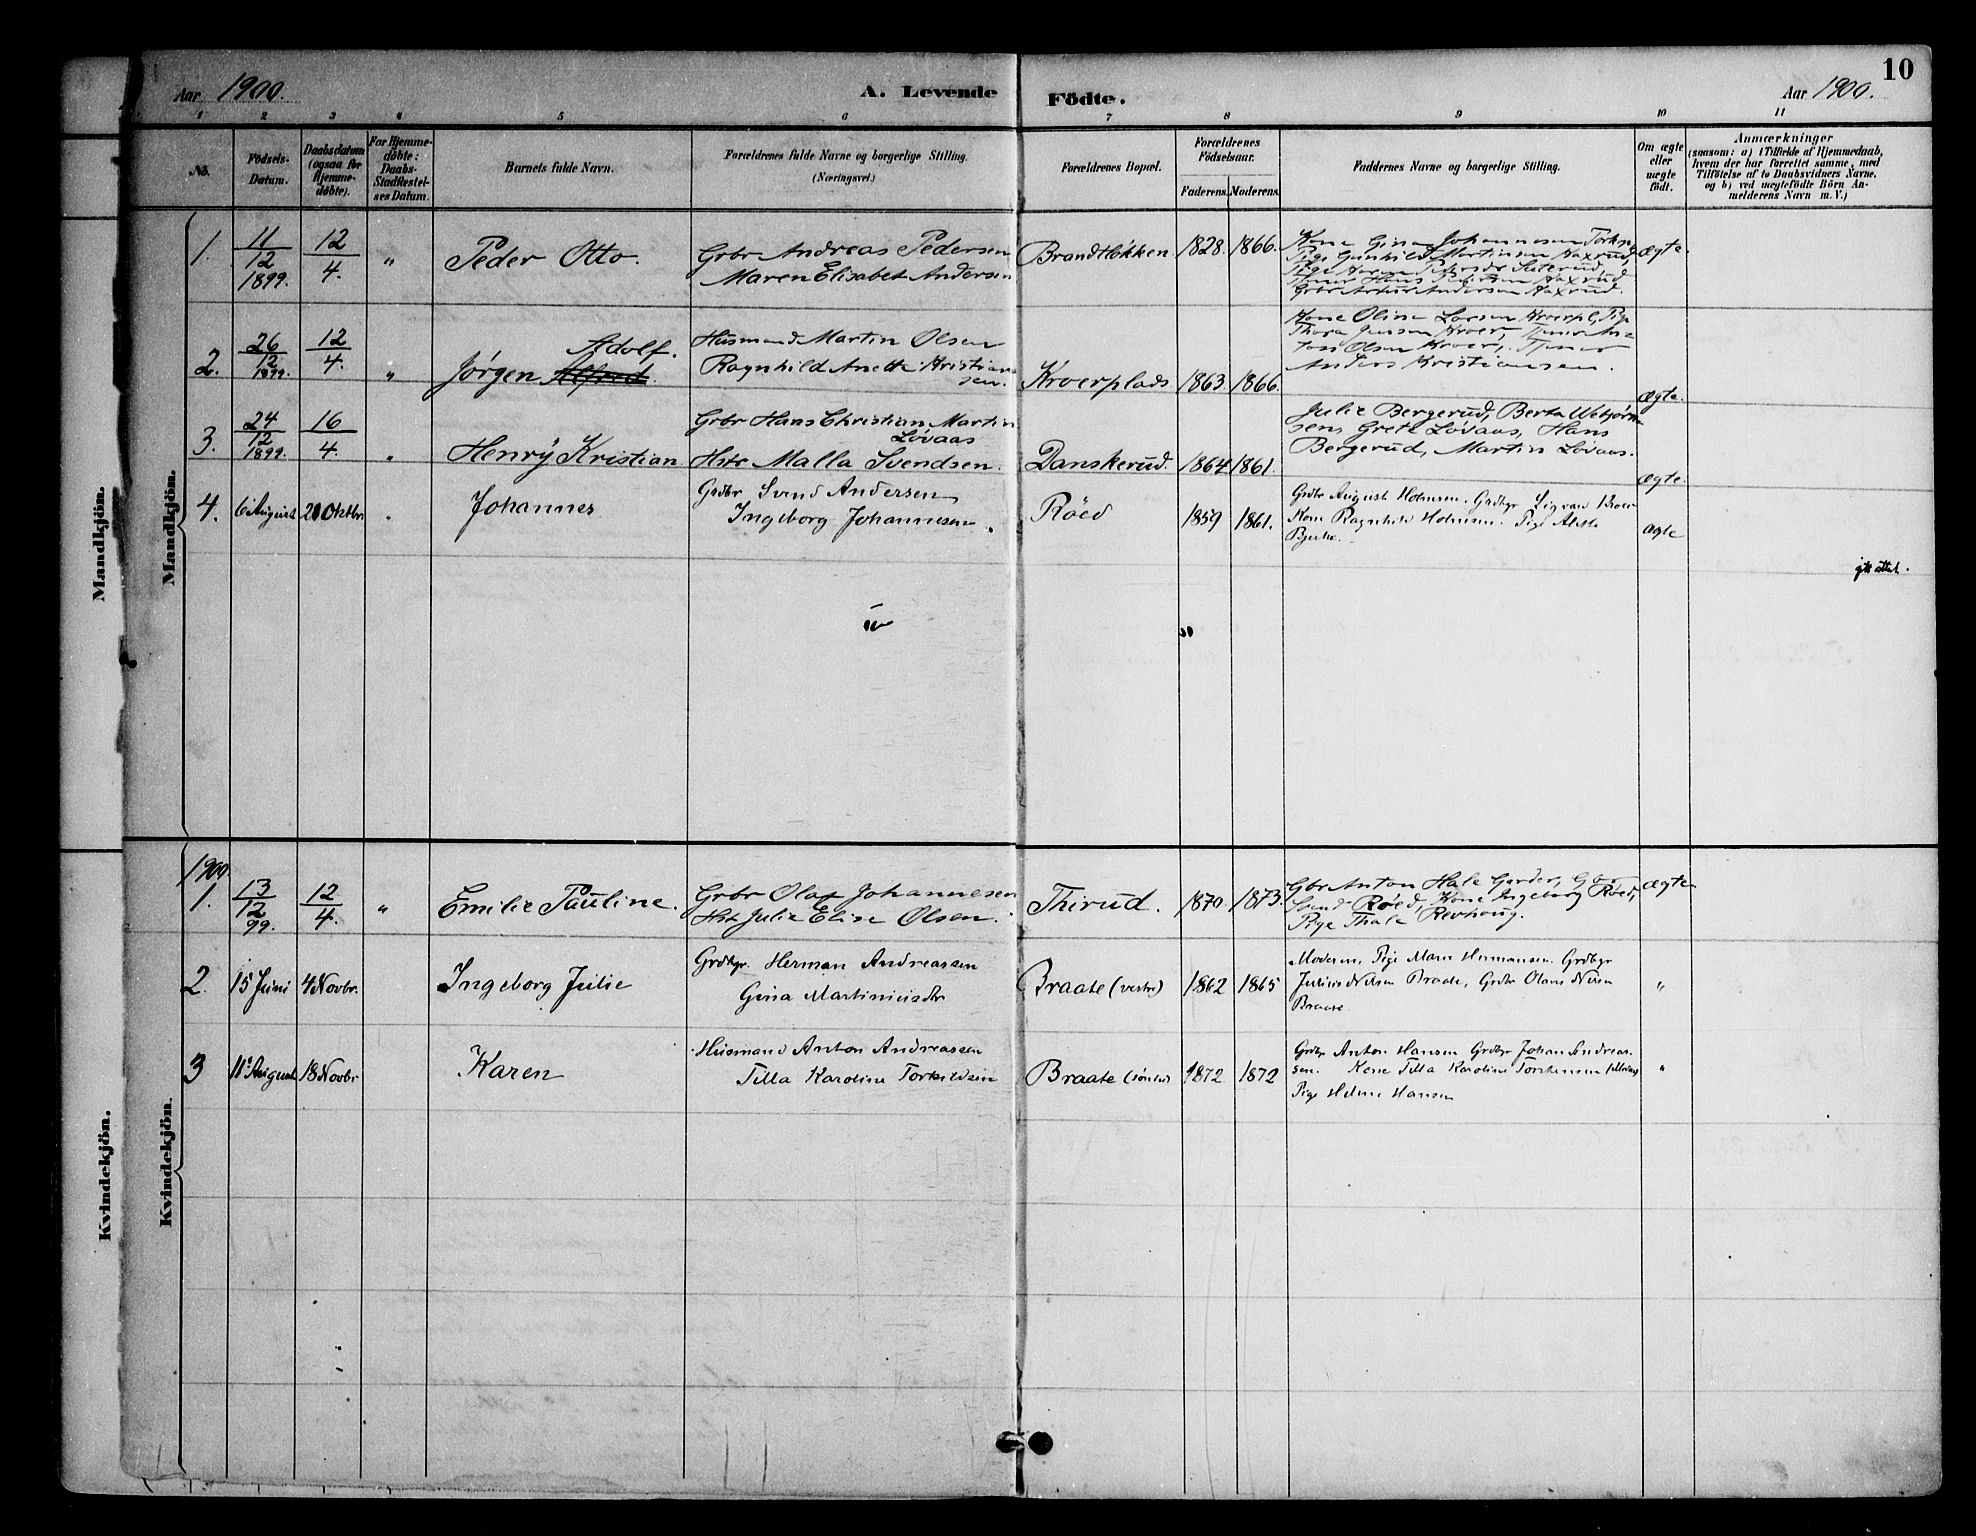 10
Aar 1900.
A. Levende
Födte.
Aar 1900.
1 2 3 4 5 6 7 8 9 10 11
No.
Födsels-
Datum.
Daabsdatum
(ogsaa for
Hjemme-
döbte).
For Hjemme-
döbte:
Daabs-
Stadfæstel-
ses Datum.
Barnets fulde Navn.
Forældrenes fulde Navne og borgerlige Stilling.
(Næringsvei.)
Forældrenes Bopæl.
Forældrenes
Födselsaar.
Faderens. Moderens.
Faddernes Navne og borgerlige Stilling.
Om ægte
eller
uægte
födt.
Anmærkninger
(saasom: a) i Tilfælde af Hjemmedaab,
hvem der har forrettet samme, med
Tilföielse af to Daabsvidners Navne.
og b) ved uægtefödte Börn An-
melderens Navn m. V.)
Mandkjön.
Mandkjön.
1. 11/12 1899. 12/4. " Peder Otto.
Grbr Andreas Pedersen
Maren Elisabet Andersen
Brandtløkken 1828. 1866.
Kone Gina Johannesen
Pige Gunhild Martinsen Aaxrud,
Hans Aaxrud
Grbr Artur Andersen Aaxrud.
Ægte.
2. 26/12 1899. 12/4. " Jørgen Alfred.
Adolf.
Husmand Martin Olsen
Ragnhild Anette Kristian-
sen.
Kroerplads 1863. 1866.
Kone Oline Larsen Kroerpl, Pige
Thora Jensen Kroer, Tjener An-
ton Olsen Kroer, Tjener
Anders Kristiansen.
Ægte.
3. 24/12 1899. 16/4. " Henry Kristian.
Grbr Hans Christian Martin
Løvaas
Hstr Malla Svendsen.
Danskerud. 1864 1861.
Julie Bergerud, Berta Webjørn-
sen, Grete Løvaas, Hans
Bergerud, Martin Løvaas.
Ægte.
4. 6 August 21 Oktbr. " Johannes
Grdbr Svend Andersen
Ingeborg Johannesen.
Røed 1859 1861.
Grdbr August Holmsen. Grdbgr Sigvard Kroer
Kone Ragnhild Holmsen. Pige
Bjerke.
ægte
Kvindekjön.
Kvindekjön.
1900.
1. 13/12 99. 12/4. " Emilie Pauline.
Grbr Olaf Johannesen
Hst Julie Elise Olsen.
Thirud. 1870. 1873.
Gbr Anton Hale Garder, Gbr
Svend Røed, Kone Ingeborg Røed,
Pige Thale Revhoug.
Ægte
2. 15 Juni 4 Novbr. Ingeborg Julie
Grdbgr. Herman Andreassen
Gina Martiniusdtr
Braate (vestre) 1862 1865
Moderen, Pige Marie Hermansen. Grdbgr
Julius Nilsen Braate, Grdbr Olaus Nilsen
Braate.
"
3 11 August 18 Novbr Karen
Husmand Anton Andreassen
Tilla Karoline Torkildsen
Braate (søndre) 1872 1872
Grdbgr Anton Hansen Grdbgr Johan Andreas-
sen. Kone Tilla Karoline
Pige Helene Hansen
"